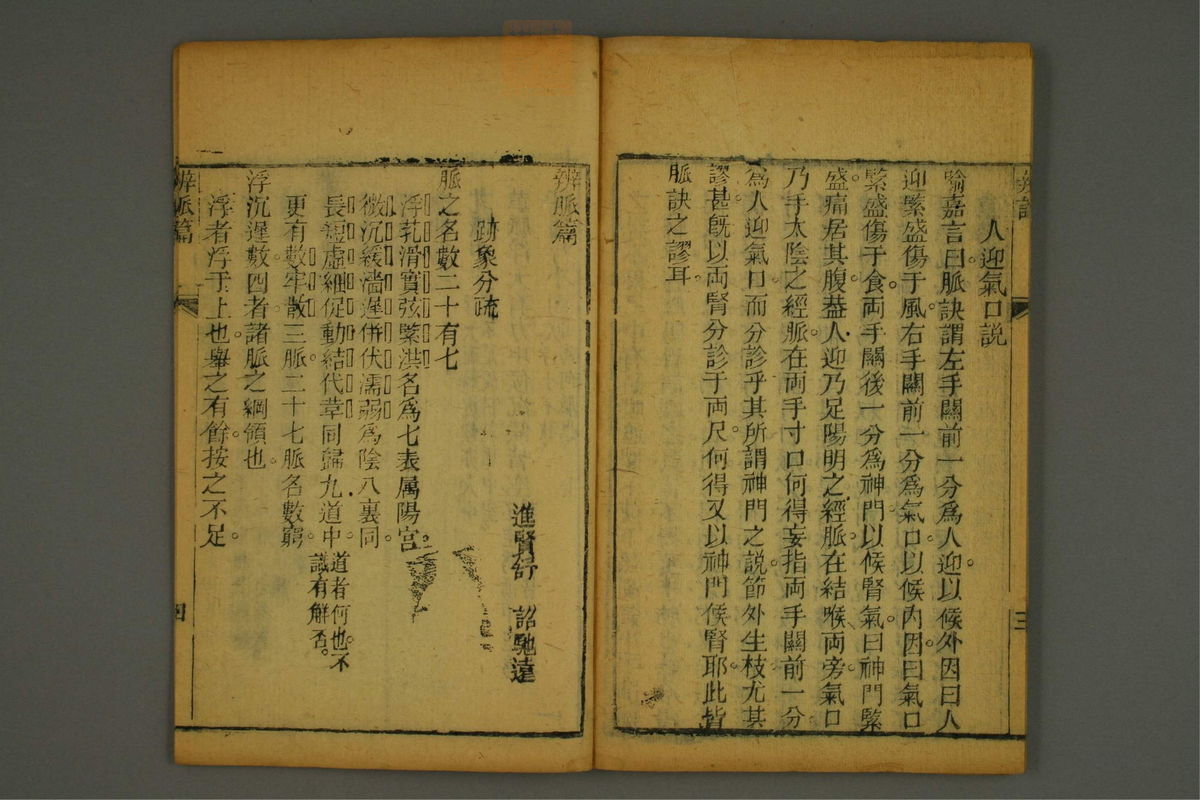 人迎氣口說
喻嘉言曰。脈訣謂左手關前一分爲人迎。以候外因曰人
迎緊盛傷于風。右手關前一分爲氣口。以候內因。曰氣口
緊盛傷于食。両手關後一分爲神門。以候腎氣。曰神門緊
盛。痛居其腹。葢人迎乃足陽明之經。脈在結喉両旁。氣口
乃手太陰之經。脈在両手寸口。何得妄指両手關前一分。
爲人迎氣口。而分診乎。其所謂神門之說。節外生枝。尤其
謬甚。旣以両腎分診于両尺。何得又以神門候腎耶。此皆
脈訣之謬耳。
三
辨脈篇
進賢舒 詔馳遠
跡象分疏
脈之名數二十有七
浮芤滑實弦緊洪名爲七表属陽宮。
微沉緩濇遲併伏濡弱爲陰八裏同。
長短虛細促動結代革同歸九道中。道者何也。不識有解否。
更有數牢散三脈。二十七脈名數窮。
浮沉遲數四者。諸脈之綱領也。
浮者浮于上也。舉之有餘。按之不足。
辨脈篇
四